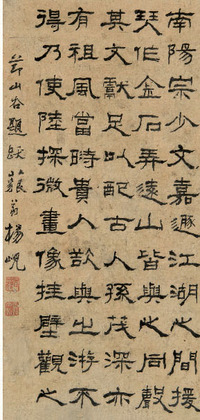 南陽宗少文嘉遯江湖之間援
琴作金石弄遠山皆與之同聲
其文獻足以配古人孫茂深亦
有祖風當時貴人欲與之游不
得乃使陸探微畫像挂壁觀之
節山谷題跋藐翁楊峴